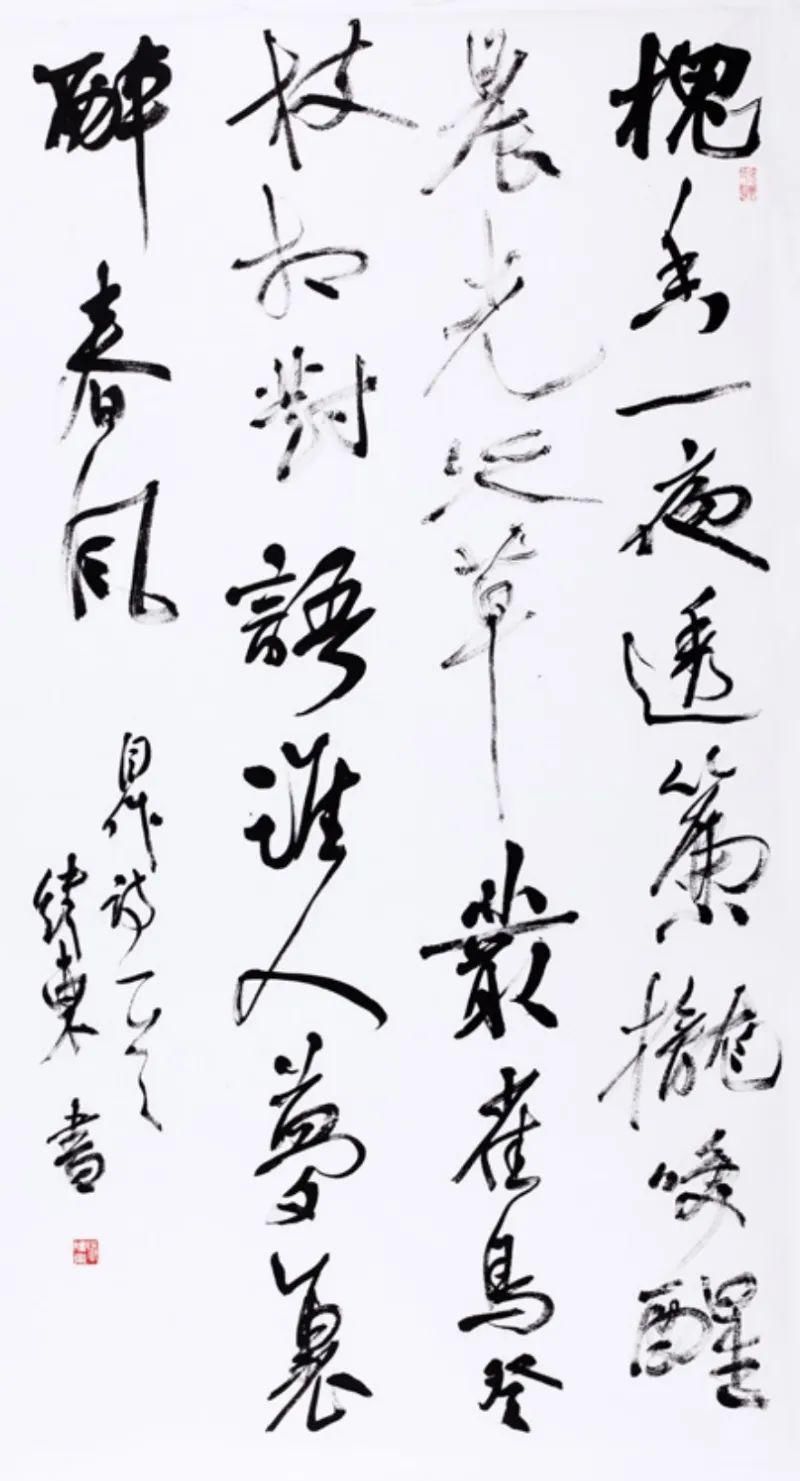 槐香一夜透簾櫳唤醒
晨光從草叢雀鳥登
枝相對語誰人夢裏
醉春風
自作詩一首
東書